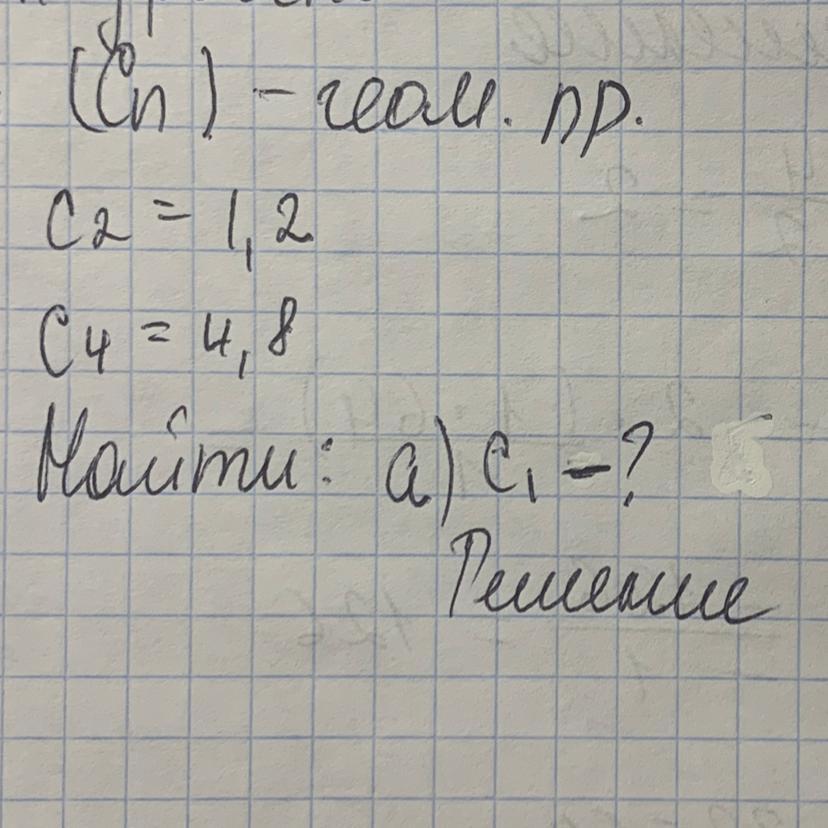 (Cn) – геом. пр.
C2 = 1,2
C4 = 4,8
Найти: а) C1 – ?
Решение